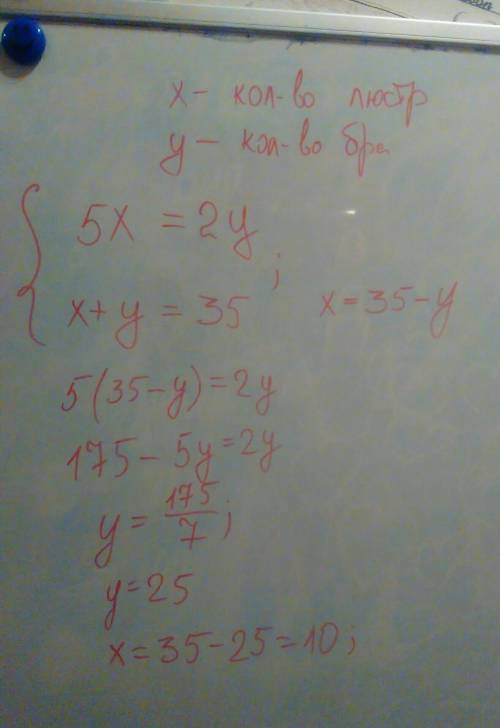 x – кол-во люстр
y – кол-во бра
5x = 2y
x + y = 35 ; x = 35 – y
5(35 – y) = 2y
175 – 5y = 2y
y = 175/7 ;
y = 25
x = 35 – 25 = 10 ;